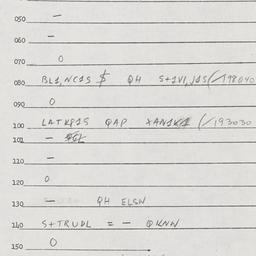 050 —
060 —
070 0
080 BL1,NC1S $ QH S+1VI,J1S(/198040
090 0
100 LATKP1S QAP XAN1K (/193030
101 —
110 —
120 0
130 — QH ELSN
140 S+TRUDL = — QKNN
150 0